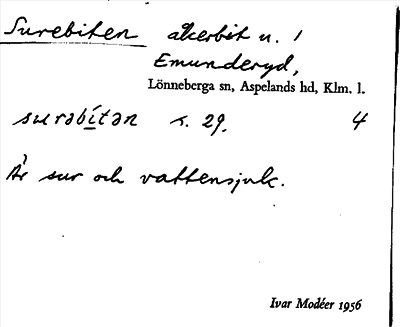 Surebiten åkerbit u. 1
Emunderyd,
Lönneberga sn, Aspelands hd, Klm. l.
surəbítən s. 29. 4
Är sur och vattensjuk.
Ivar Modéer 1956